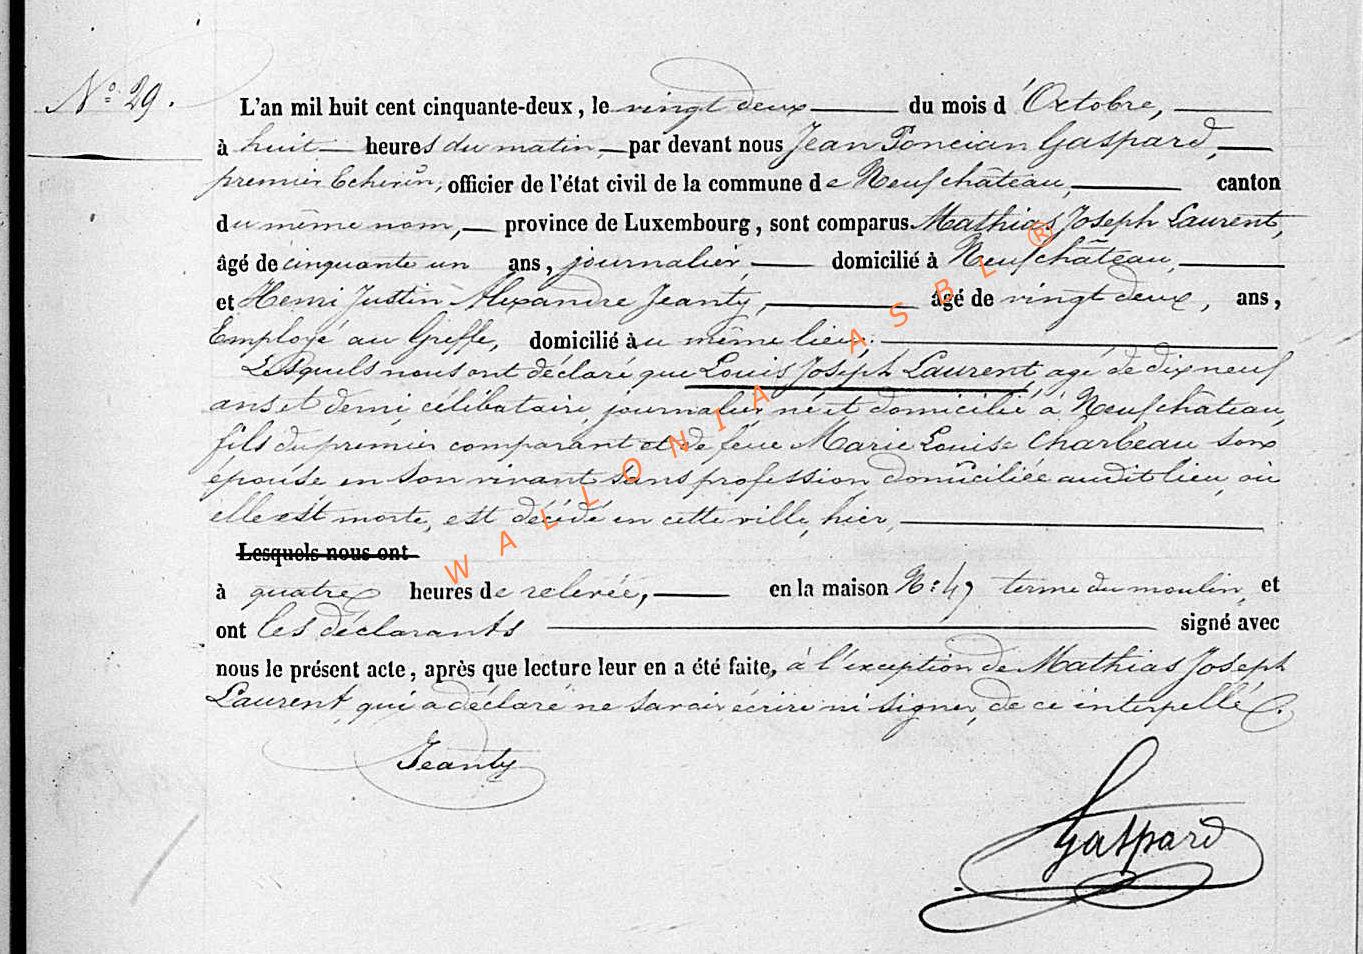 N.º 29.
L'an mil huit cent cinquante-deux, le vingt deux du mois d'Octobre,
à huit heures du matin, par devant nous Jean Poncian Gaspard,
premier Echevin, officier de l'état civil de la commune de Neufchâteau, canton
du même nom, province de Luxembourg, sont comparus Mathias Joseph Laurent,
âgé de cinquante un ans, journalier, domicilié à Neufchâteau,
et Henri Justin Alexandre Jeanty, âgé de vingt deux, ans,
Employé au Greffe, domicilié au même lieu;
Lesquels nous ont déclaré que Louis Joseph Laurent, agé de dix neuf
ans et demi célibataire, journalier né et domicilié à Neufchâteau,
fils du premier comparant et de feue Marie Louise Charbeau son
épouse en son vivant sans profession domiciliée audit lieu, où
elle est morte, est décédé en cette ville, hier,
Lesquels nous ont
à quatre heures de relevée, en la maison N: 47 terme du moulin, et
ont les déclarants signé avec
nous le présent acte, après que lecture leur en a été faite, à l'exception de Mathias Joseph
Laurent, qui a déclaré ne savoir écrire ni signer, de ce interpellé.
Jeanty
Gaspard
WALLONIA ASBL ®